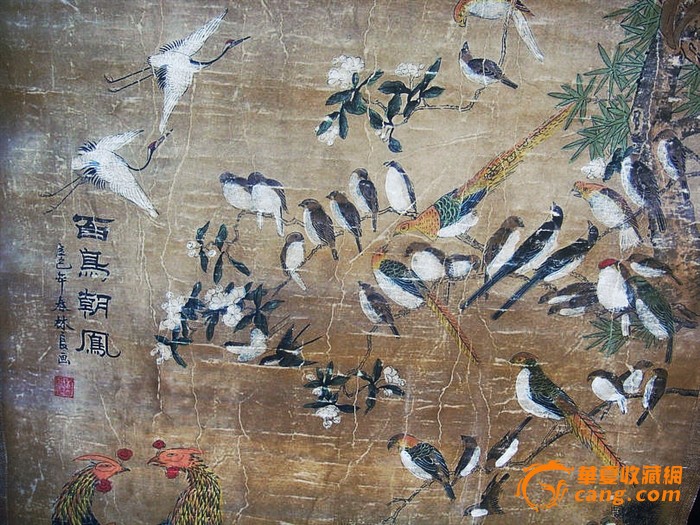 百鳥朝鳳
辛巳年春林良画
華夏收藏網
cang.com